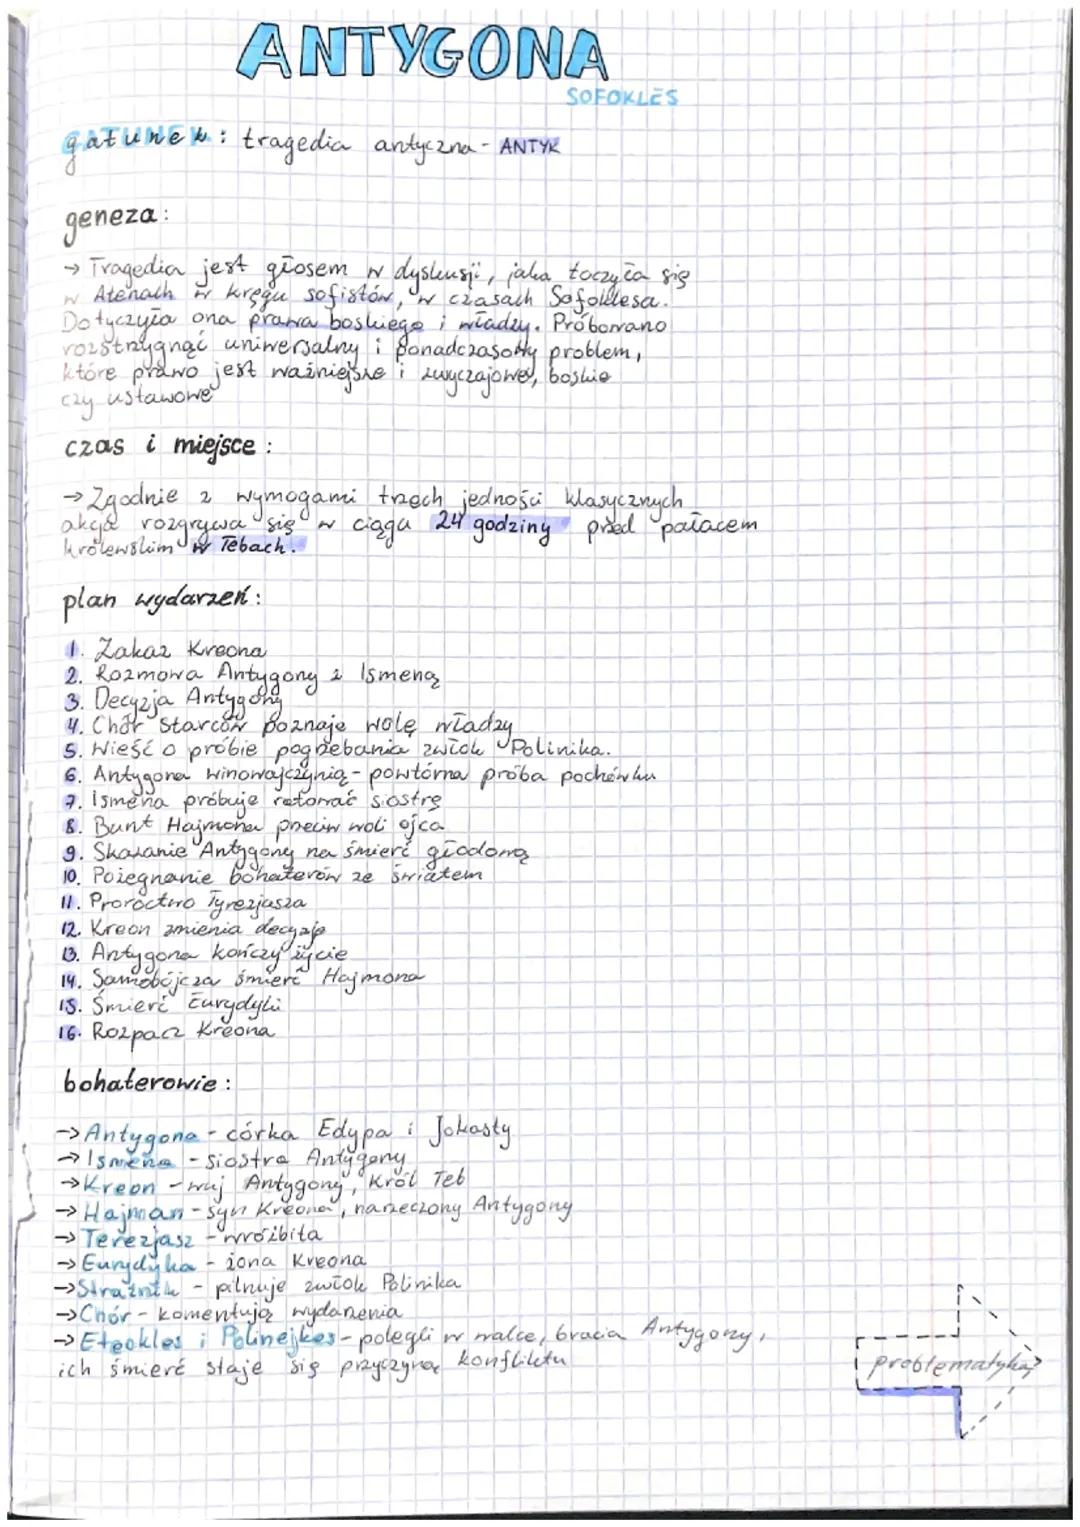 ANTYGONA
SOFOKLES
gatunek: tragedia antyczna - ANTYK
geneza:
→ Tragedia jest głosem w dyskusji, jaka toczyła się
w Atenach w kręgu sofistów, w czasach Sofoklesa.
Dotyczyła ona prawa boskiego i władzy. Próbowano
rozstrzygnąć uniwersalny i ponadczasowy problem,
które prawo jest ważniejsze i zwyczajowe, boskie
czy ustawowe
czas i miejsce:
→ Zgodnie z wymogami trzech jedności klasycznych
akcja rozgrywa się w ciągu 24 godziny przed pałacem
królewskim w Tebach.
plan wydarzeń:
1. Zakaz Kreona
2. Rozmowa Antygony z Ismeną
3. Decyzja Antygony
4. Chór starców poznaje wolę władzy
5. Wieść o próbie pogrzebania zwłok Polinika.
6. Antygona winowajczynią - powtórna próba pochówku
7. Ismena próbuje ratować siostrę
8. Bunt Hajmona przeciw woli ojca
9. Skazanie Antygony na śmierć głodową
10. Pożegnanie bohaterów ze światem
11. Proroctwo Tyrezjasza
12. Kreon zmienia decyzję
13. Antygona kończy życie
14. Samobójcza śmierć Hajmona
15. Śmierć Eurydyki
16. Rozpacz Kreona
bohaterowie:
→ Antygona - córka Edypa i Jokasty
→ Ismena - siostra Antygony
→ Kreon - wuj Antygony, Król Teb
→ Hajman - syn Kreona, narzeczony Antygony
→ Terezjasz - wróżbita
→ Eurydyka - żona Kreona
→ Strażnik - pilnuje zwłok Polinika
→ Chór - komentują wydarzenia
→ Eteokles i Polinejkes - polegli w walce, bracia Antygony,
ich śmierć staje się przyczyną konfliktu
problematyka